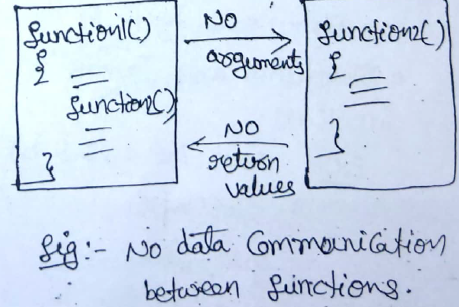 function1()
{
function2()
}
No
arguments
No
return
values
function2()
{
}
Fig:- No data Communication
between functions.